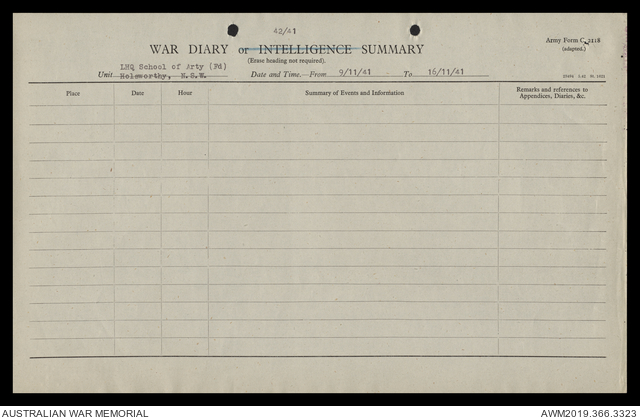 42/41
WAR DIARY or INTELLIGENCE SUMMARY
Army Form C. 2118
(adapted.)
(Erase heading not required).
Unit LHQ School of Arty (Fd)
Holsworthy, N.S.W.
Date and Time.—From 9/11/41 To 16/11/41
Place Date Hour Summary of Events and Information Remarks and references to
Appendices, Diaries, &c.
AUSTRALIAN WAR MEMORIAL
AWM2019.366.3323